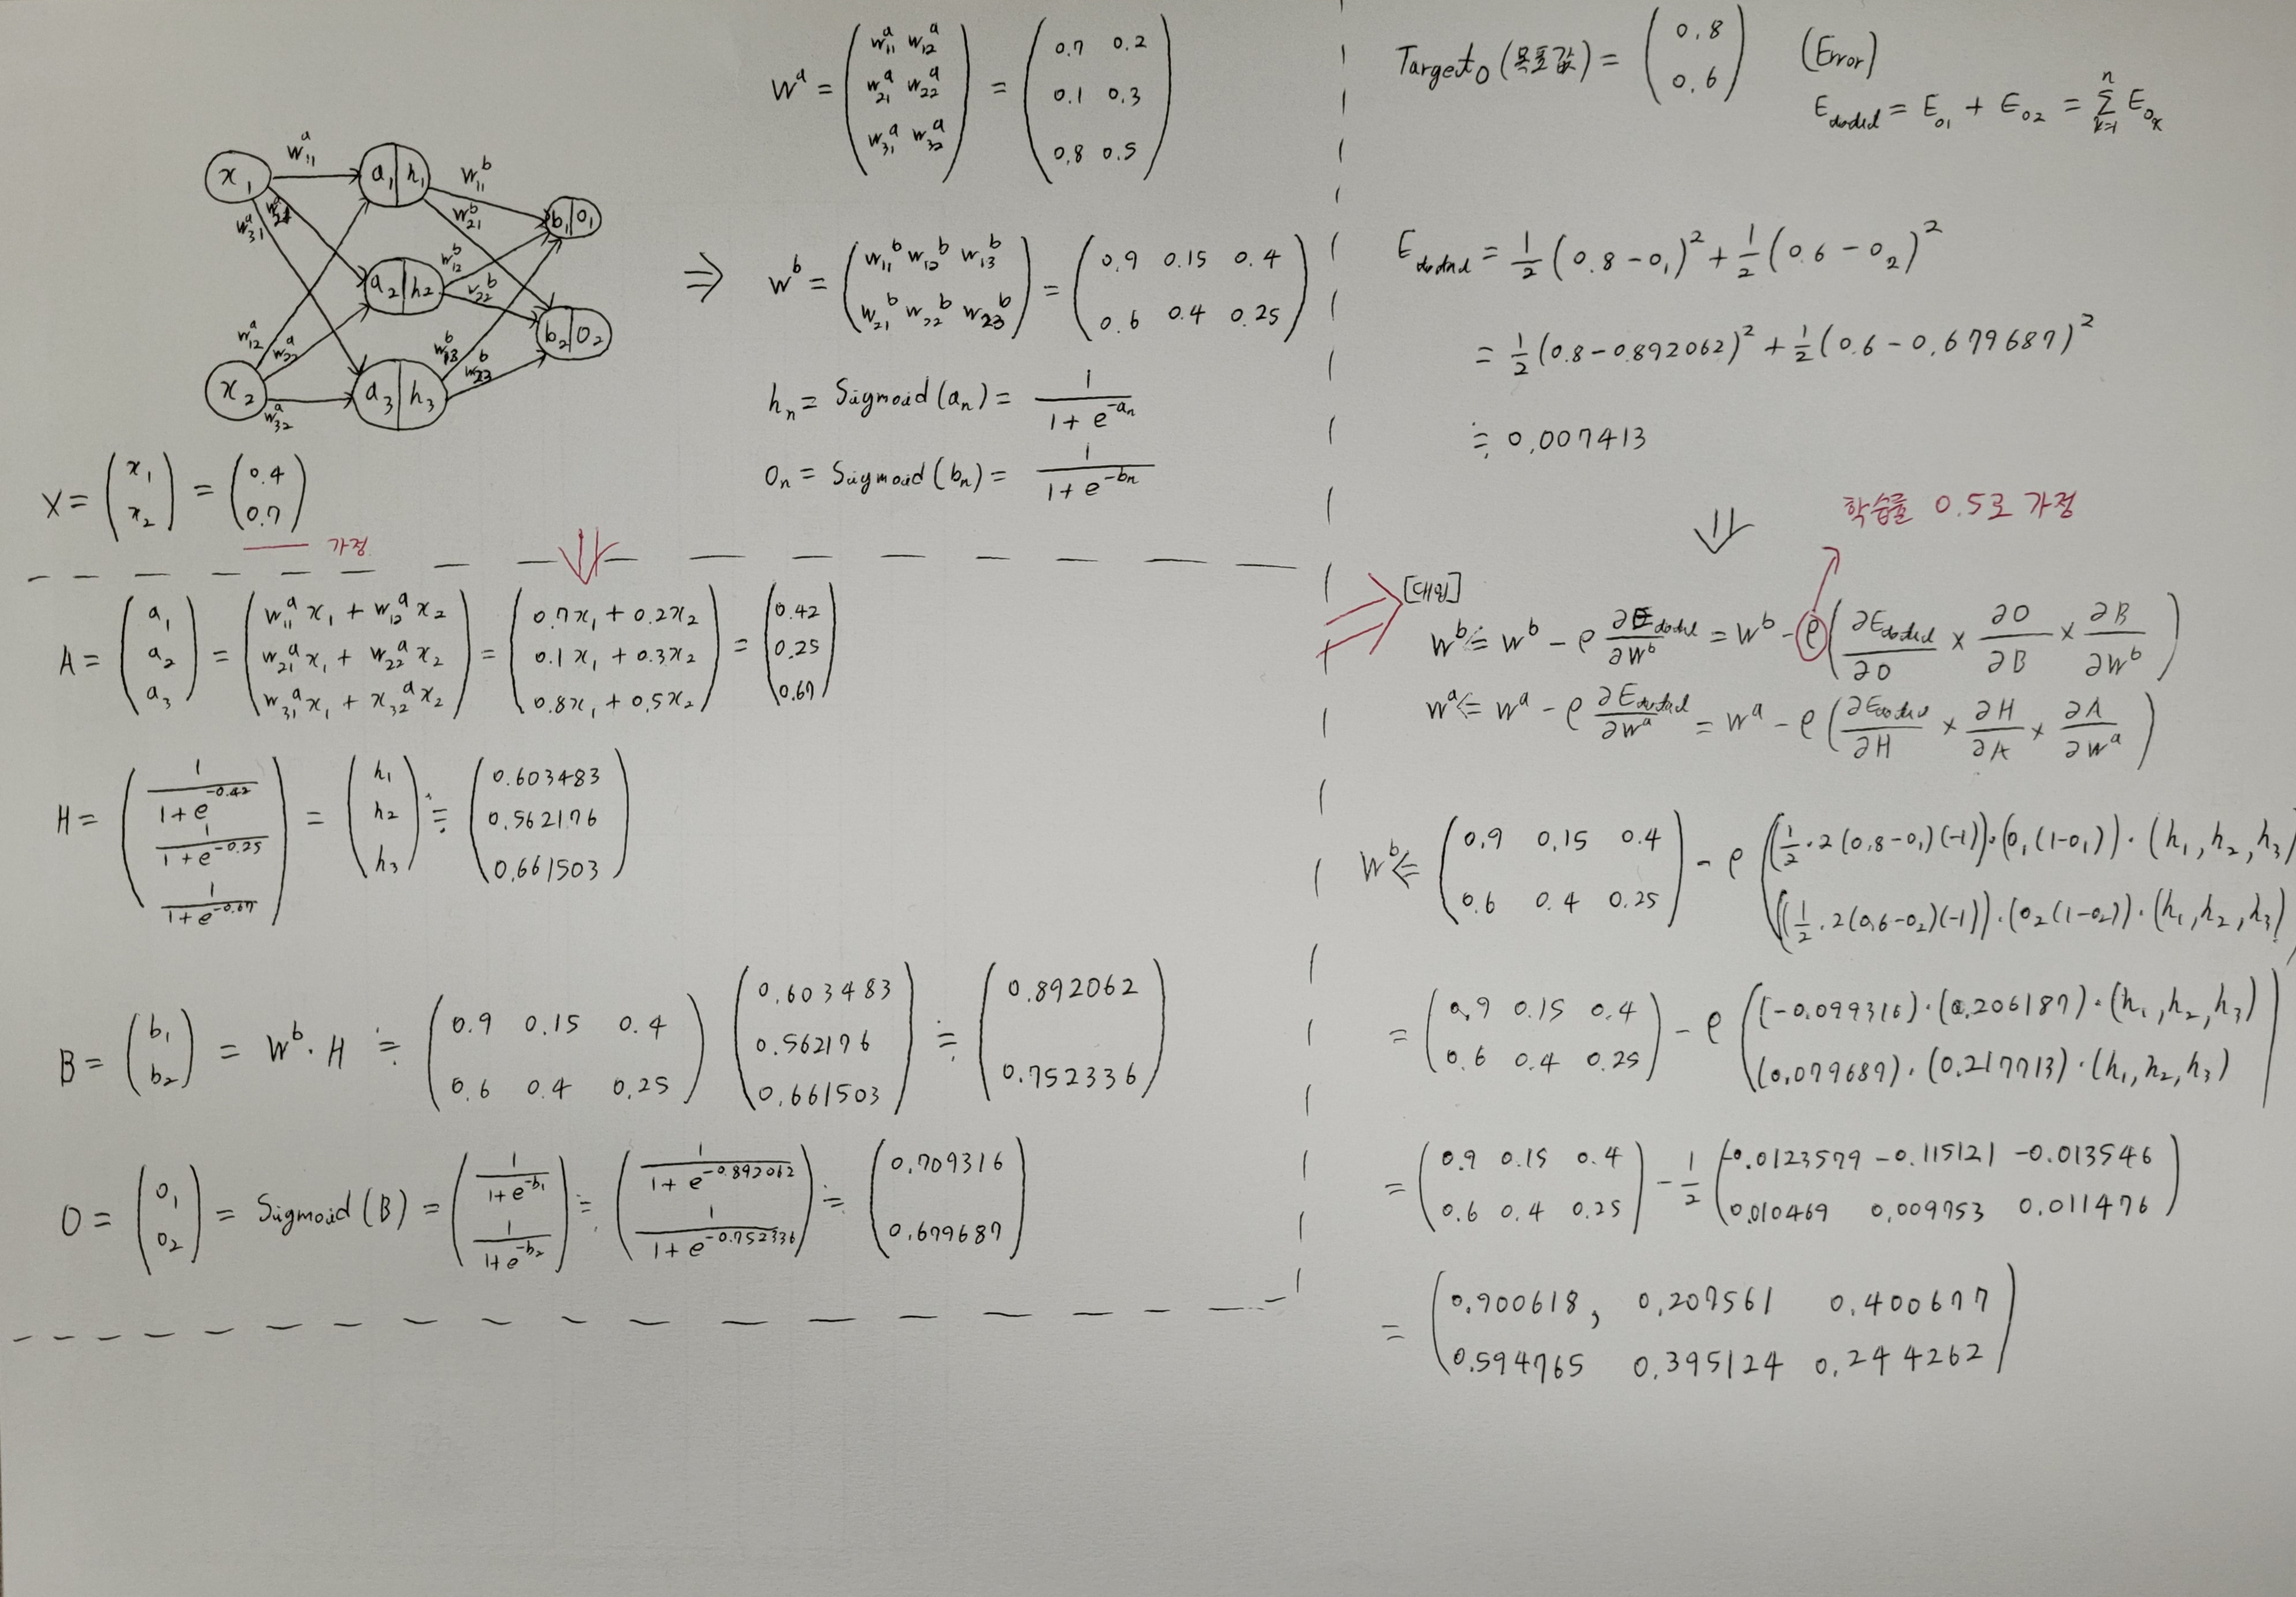 x₁ w₁₁ᵃ a₁|h₁ w₁₁ᵇ b₁|o₁
w₃₁ᵃ w₂₁ᵃ w₂₁ᵇ
a₂|h₂ w₁₂ᵇ w₂₂ᵇ
w₁₂ᵃ w₂₂ᵃ w₁₃ᵇ w₂₃ᵇ b₂|o₂
x₂ w₃₂ᵃ a₃|h₃
X = (x₁ ; x₂) = (0.4 ; 0.7)
가정
⇒ Wᵃ = (w₁₁ᵃ w₁₂ᵃ ; w₂₁ᵃ w₂₂ᵃ ; w₃₁ᵃ w₃₂ᵃ) = (0.7 0.2 ; 0.1 0.3 ; 0.8 0.5)
Wᵇ = (w₁₁ᵇ w₁₂ᵇ w₁₃ᵇ ; w₂₁ᵇ w₂₂ᵇ w₂₃ᵇ) = (0.9 0.15 0.4 ; 0.6 0.4 0.25)
hₙ = Sigmoid(aₙ) = 1 / (1 + e^-aₙ)
oₙ = Sigmoid(bₙ) = 1 / (1 + e^-bₙ)
A = (a₁ ; a₂ ; a₃) = (w₁₁ᵃx₁ + w₁₂ᵃx₂ ; w₂₁ᵃx₁ + w₂₂ᵃx₂ ; w₃₁ᵃx₁ + x₃₂ᵃx₂) = (0.7x₁ + 0.2x₂ ; 0.1x₁ + 0.3x₂ ; 0.8x₁ + 0.5x₂) = (0.42 ; 0.25 ; 0.67)
H = (1 / (1 + e^-0.42) ; 1 / (1 + e^-0.25) ; 1 / (1 + e^-0.67)) = (h₁ ; h₂ ; h₃) ≒ (0.603483 ; 0.562176 ; 0.661503)
B = (b₁ ; b₂) = Wᵇ · H ≒ (0.9 0.15 0.4 ; 0.6 0.4 0.25) (0.603483 ; 0.562176 ; 0.661503) ≒ (0.892062 ; 0.752336)
O = (o₁ ; o₂) = Sigmoid(B) = (1 / (1 + e^-b₁) ; 1 / (1 + e^-b₂)) ≒ (1 / (1 + e^-0.892062) ; 1 / (1 + e^-0.752336)) ≒ (0.709316 ; 0.679687)
Target₀ (목표값) = (0.8 ; 0.6) (Error)
E_total = E_o₁ + E_o₂ = Σ_{k=1}^{n} E_oₖ
E_total = 1/2 (0.8 − o₁)² + 1/2 (0.6 − o₂)²
= 1/2 (0.8 − 0.892062)² + 1/2 (0.6 − 0.679687)²
≒ 0.007413
학습률 0.5로 가정
[대입]
Wᵇ ⇐ Wᵇ − ρ ∂E_total/∂Wᵇ = Wᵇ − ρ (∂E_total/∂O × ∂O/∂B × ∂B/∂Wᵇ)
Wᵃ ⇐ Wᵃ − ρ ∂E_total/∂Wᵃ = Wᵃ − ρ (∂E_total/∂H × ∂H/∂A × ∂A/∂Wᵃ)
Wᵇ ⇐ (0.9 0.15 0.4 ; 0.6 0.4 0.25) − ρ ((1/2 · 2(0.8 − o₁)(−1)) · (o₁(1−o₁)) · (h₁, h₂, h₃) ; (1/2 · 2(0.6 − o₂)(−1)) · (o₂(1−o₂)) · (h₁, h₂, h₃))
= (0.9 0.15 0.4 ; 0.6 0.4 0.25) − ρ ((−0.099316) · (0.206187) · (h₁, h₂, h₃) ; (0.079687) · (0.217713) · (h₁, h₂, h₃))
= (0.9 0.15 0.4 ; 0.6 0.4 0.25) − 1/2 (−0.0123579 −0.115121 −0.013546 ; 0.010469 0.009753 0.011476)
= (0.900618, 0.207561 0.400677 ; 0.594765 0.395124 0.244262)